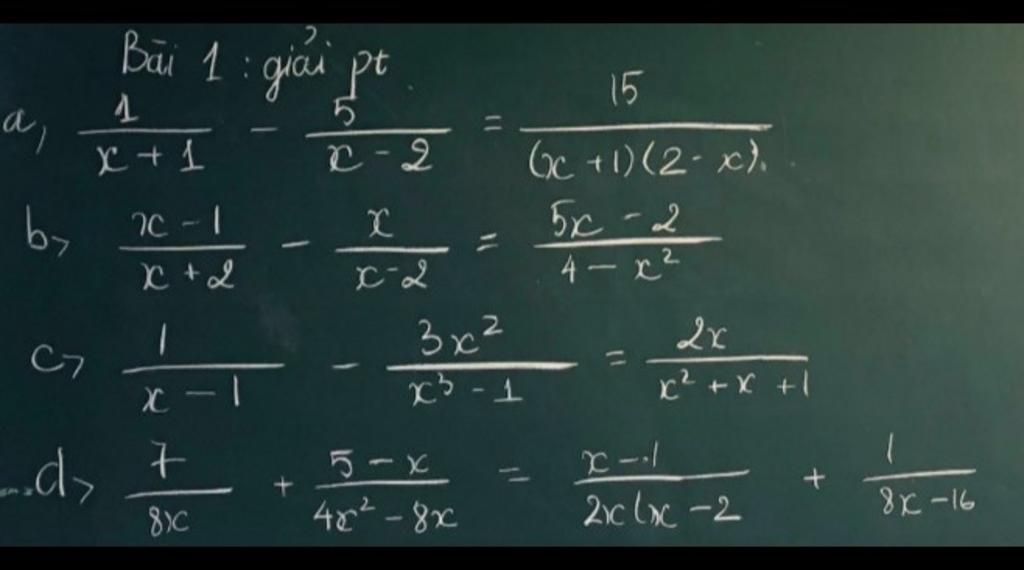 Bài 1 : giải pt
a, 1/(x + 1) - 5/(x - 2) = 15/((x + 1)(2 - x))
b, (x - 1)/(x + 2) - x/(x - 2) = (5x - 2)/(4 - x²)
c, 1/(x - 1) - 3x²/(x³ - 1) = 2x/(x² + x + 1)
d, 7/(8x) + (5 - x)/(4x² - 8x) = (x - 1)/(2x(x - 2) + 1/(8x - 16)